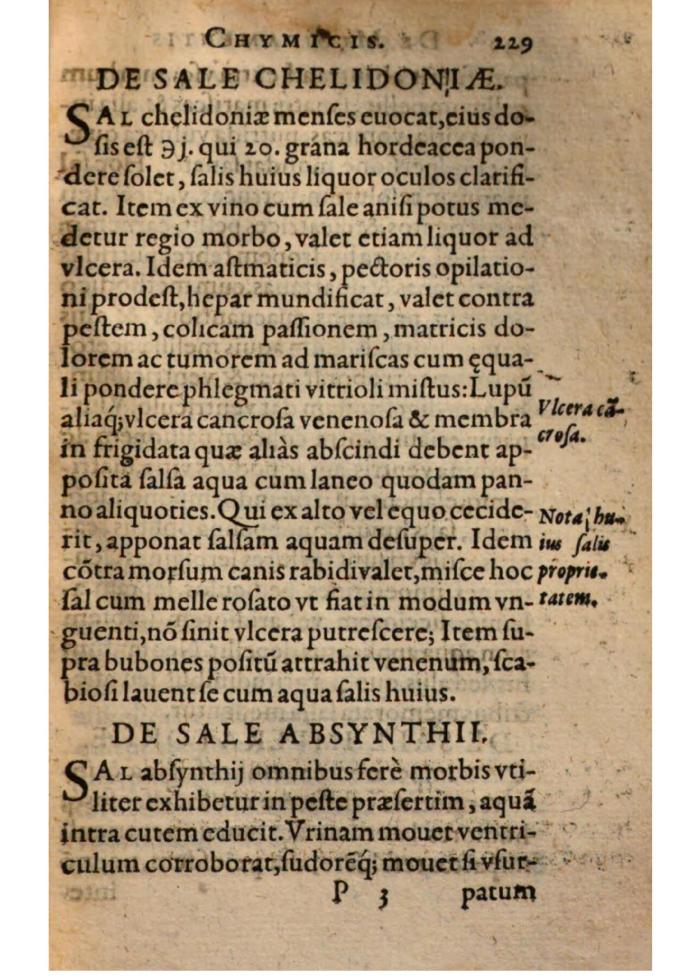 CHYMICIS. 229
DE SALE CHELIDONIÆ.
SAL chelidoniæ menſes euocat, eius do-
ſis eſt ℈j. qui 20. grána hordeacea pon-
dere ſolet, ſalis huius liquor oculos clarifi-
cat. Item ex vino cum ſale aniſi potus me-
detur regio morbo, valet etiam liquor ad
vlcera. Idem aſtmaticis, pectoris opilatio-
ni prodeſt, hepar mundificat, valet contra
peſtem, colicam paſſionem, matricis do-
lorem ac tumorem ad mariſcas cum ęqua-
li pondere phlegmati vitrioli miſtus: Lupū
aliaq́; vlcera cancroſa venenoſa & membra
Vlcera cā-
croſa.
in frigidata quæ aliàs abſcindi debent ap-
poſita ſalſa aqua cum laneo quodam pan-
no aliquoties. Qui ex alto vel equo cecide-
rit, apponat ſalſam aquam deſuper. Idem
cōtra morſum canis rabidi valet, miſce hoc
ſal cum melle roſato vt fiat in modum vn-
Nota, hu-
ius ſalis
proprie-
tatem.
guenti, nō ſinit vlcera putreſcere; Item ſu-
pra bubones poſitū attrahit venenum, ſca-
bioſi lauent ſe cum aqua ſalis huius.
DE SALE ABSYNTHII.
SAL abſynthij omnibus ferè morbis vti-
liter exhibetur in peſte præſertim, aquā
intra cutem educit. Vrinam mouet ventri-
culum corroborat, ſudorēq́; mouet ſi vſur-
P 3 patum